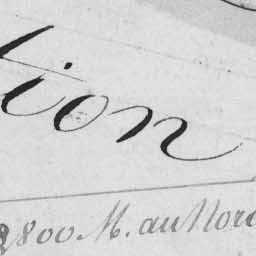 tion
2800 M. au Nord